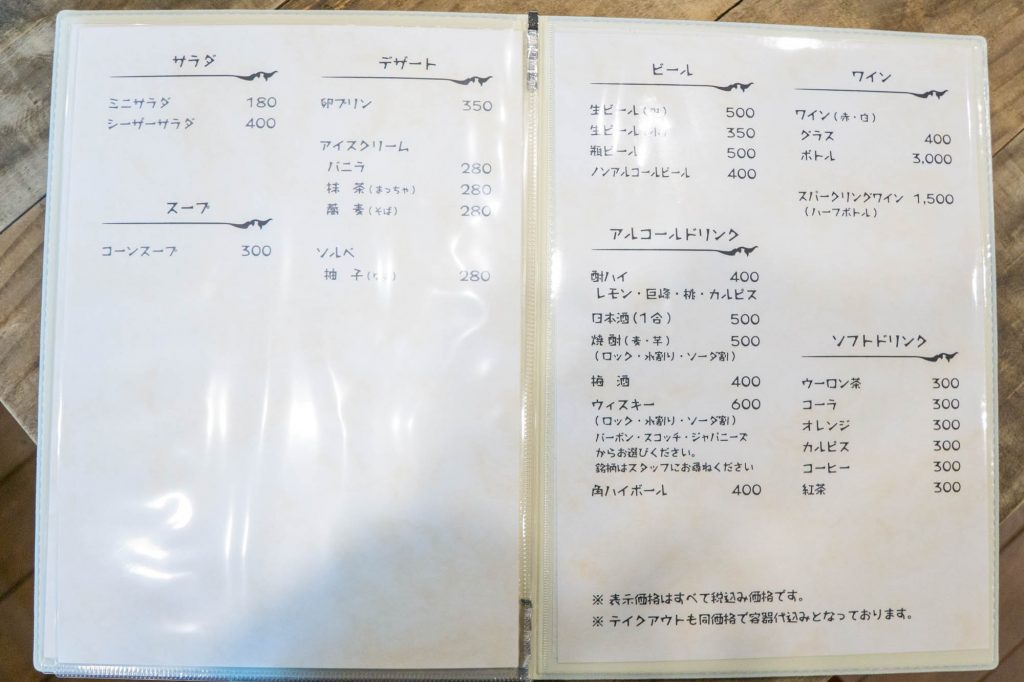 サラダ
ミニサラダ 180
シーザーサラダ 400
スープ
コーンスープ 300
デザート
卵プリン 350
アイスクリーム
バニラ 280
抹 茶(まっちゃ) 280
蕎 麦(そば) 280
ソルベ
柚 子 280
ビール
生ビール 500
生ビール 350
瓶ビール 500
ノンアルコールビール 400
アルコールドリンク
酎ハイ 400
レモン・巨峰・桃・カルピス
日本酒(1合) 500
焼酎(麦・芋) 500
(ロック・水割り・ソーダ割)
梅 酒 400
ウィスキー 600
(ロック・水割り・ソーダ割)
バーボン・スコッチ・ジャパニーズ
からお選びください。
銘柄はスタッフにお尋ねください
角ハイボール 400
ワイン
ワイン(赤・白)
グラス 400
ボトル 3,000
スパークリングワイン 1,500
(ハーフボトル)
ソフトドリンク
ウーロン茶 300
コーラ 300
オレンジ 300
カルピス 300
コーヒー 300
紅茶 300
※ 表示価格はすべて税込み価格です。
※ テイクアウトも同価格で容器代込みとなっております。